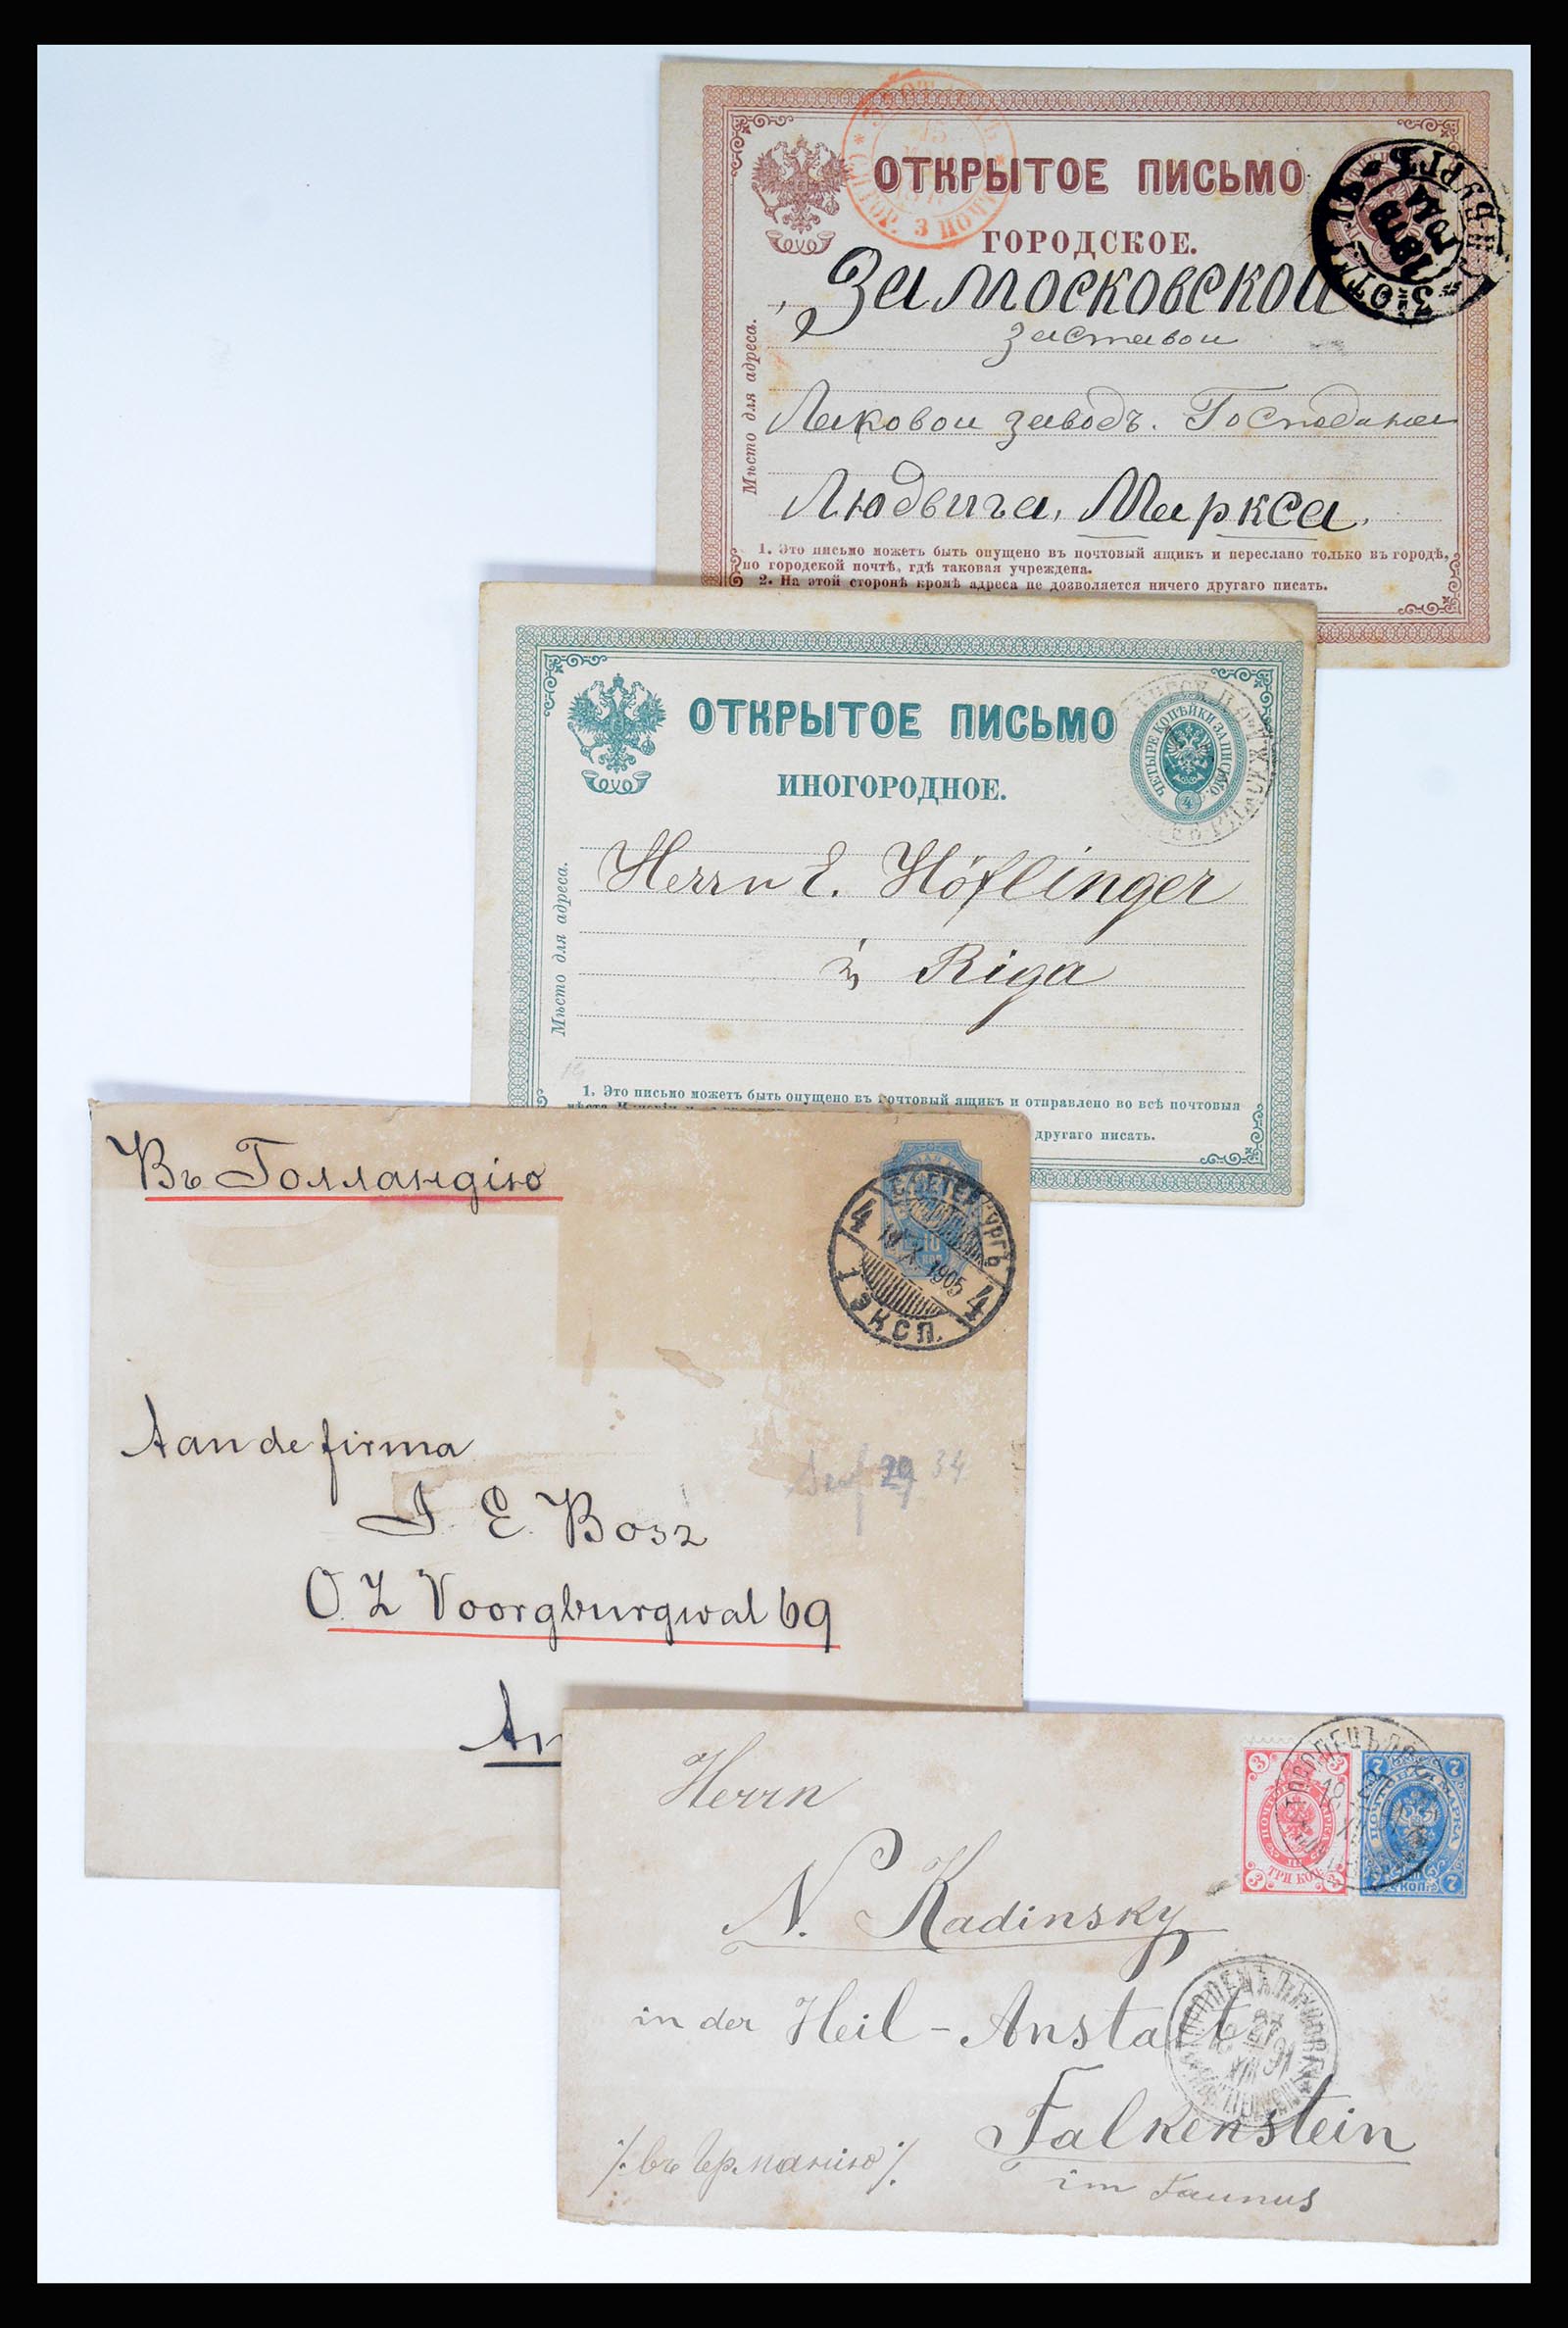 ОТКРЫТОЕ ПИСЬМО
ГОРОДСКОЕ.
За московской
заставои
Лаковои заводъ. Господина
Людвига, Маркса,
Мѣсто для адреса.
1. Это письмо можетъ быть опущено въ почтовый ящикъ и переслано только въ городѣ,
по городской почтѣ, гдѣ таковая учреждена.
2. На этой сторонѣ кромѣ адреса не дозволяется ничего другаго писать.
ОТКРЫТОЕ ПИСЬМО
ИНОГОРОДНОЕ.
ЧЕТЫРЕ КОПѢЙКИ ЗА ПИСЬМО.
4
Herrn E. Höflinger
in Riga
Мѣсто для адреса.
1. Это письмо можетъ быть опущено въ почтовый ящикъ и отправлено во всѣ почтовыя
другаго писать.
Въ Голландію
С.ПЕТЕРБУРГЪ
4 1905 4
1 ЭКСП.
Aan de firma
J. E. Bosz
O. Z Voorgburgwal 69
Am
29 34
Herrn
N. Kadinsky
in der Heil-Anstalt
Falkenstein
im Taunus
/. въ Германію /.
3 3
ТРИ КОП.
3 3
7 7
ПОЧТОВАЯ МАРКА
7 КОП. 7